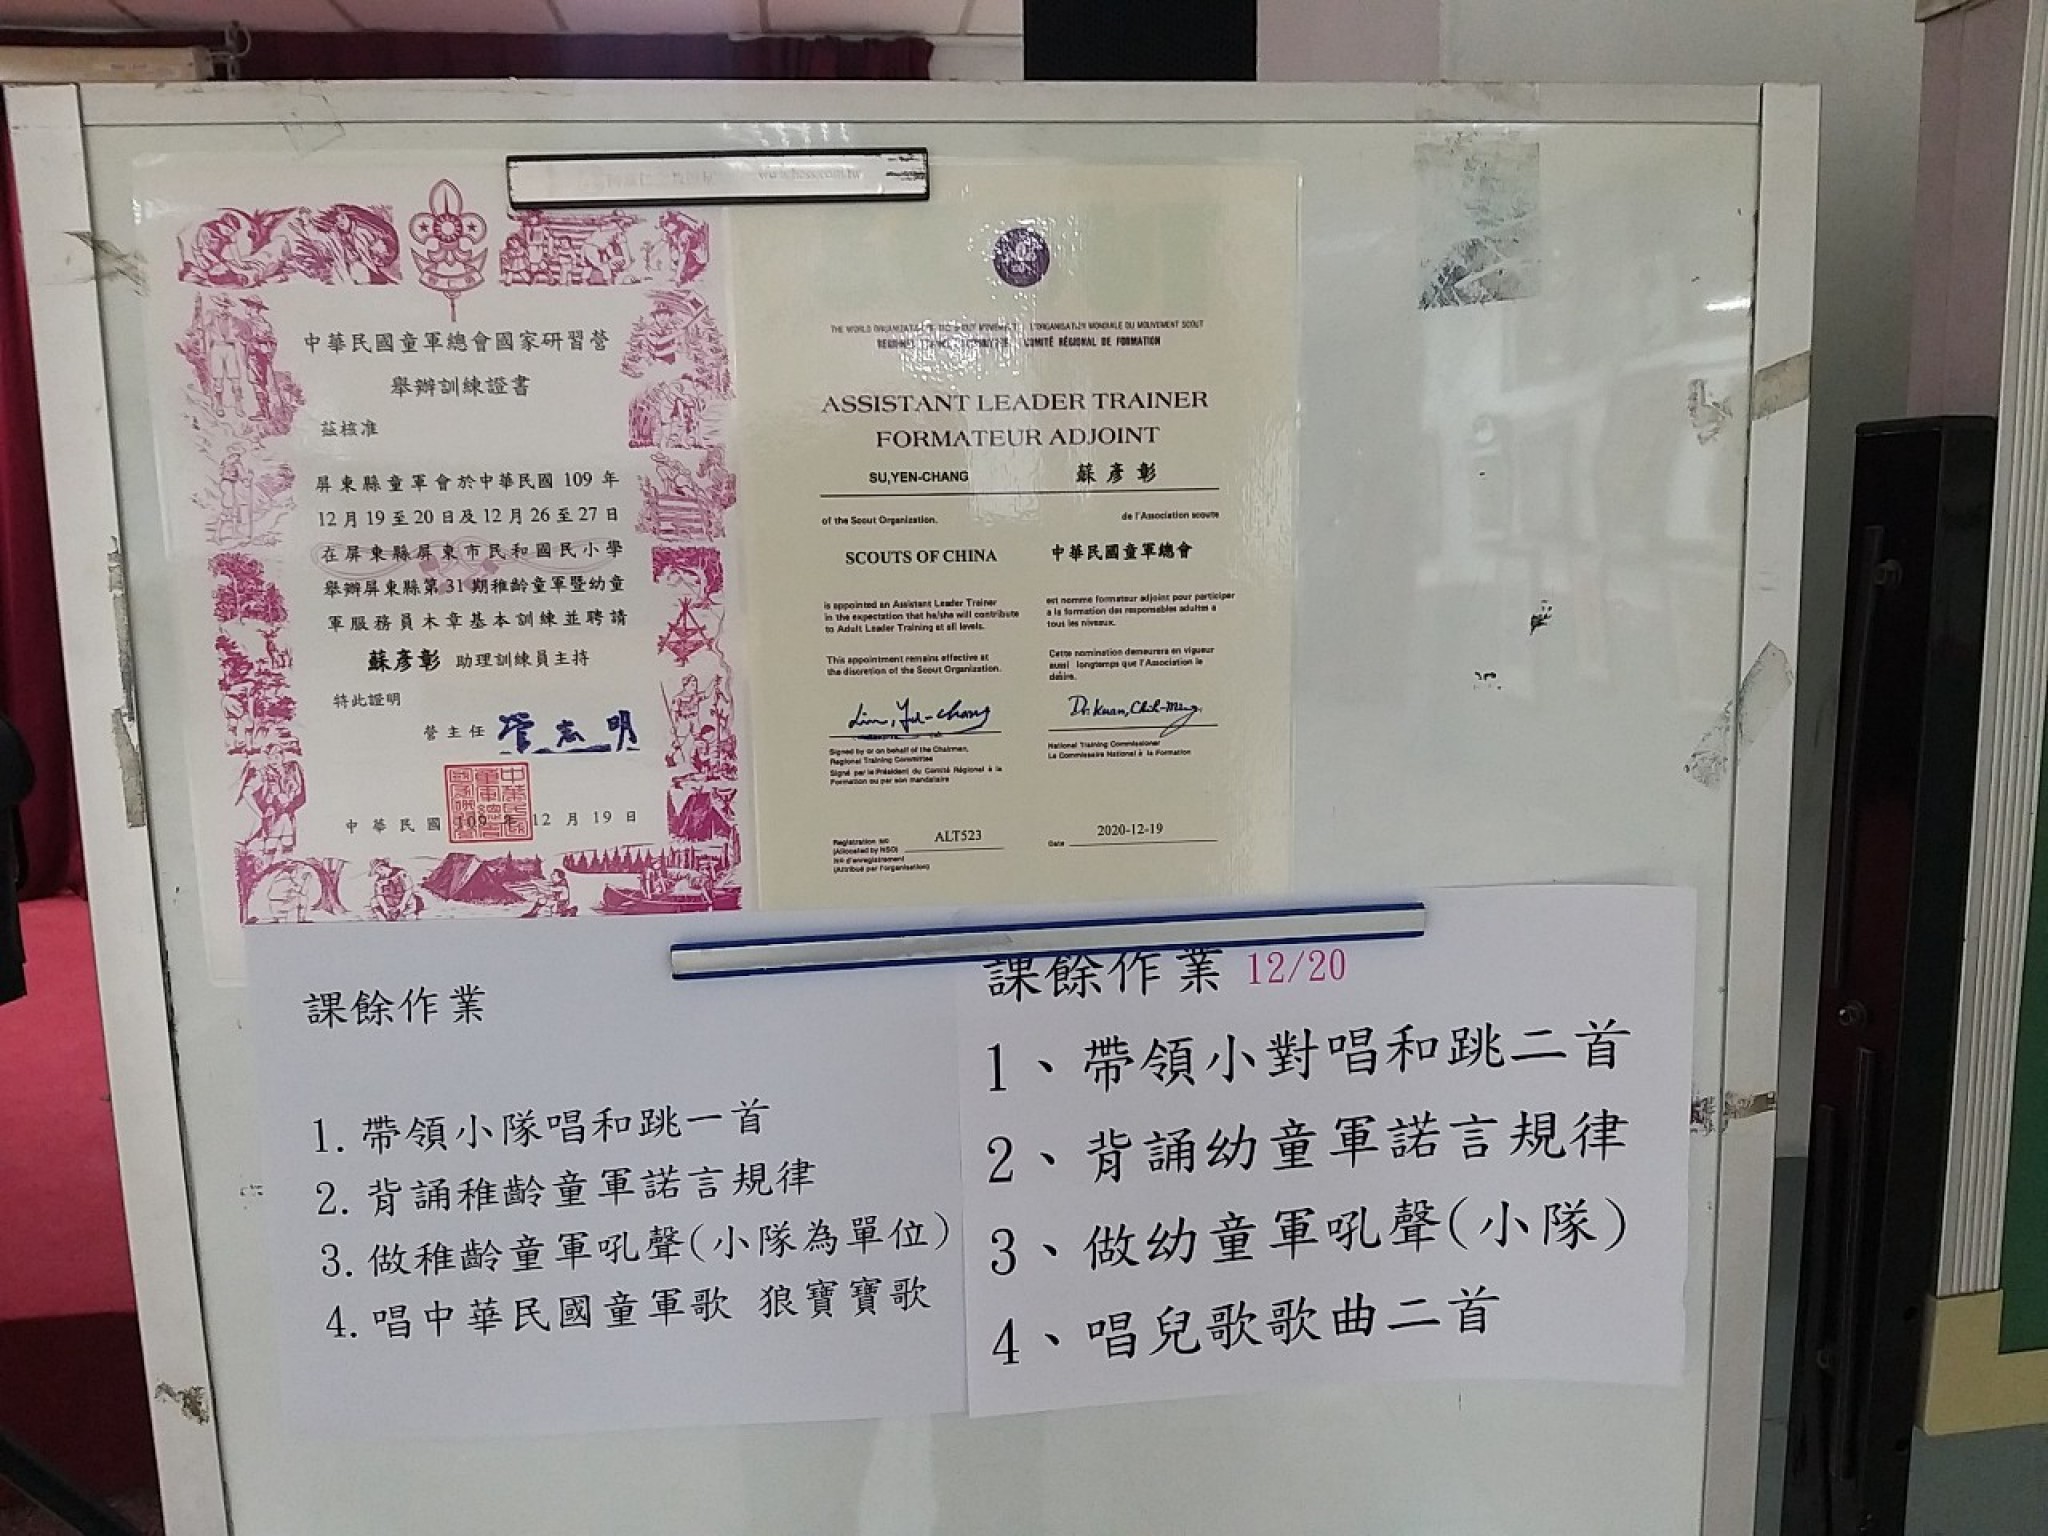 中華民國童軍總會國家研習營
舉辦訓練證書
茲核准
屏東縣童軍會於中華民國 109 年
12 月 19 至 20 日及 12 月 26 至 27 日
在屏東縣屏東市民和國民小學
舉辦屏東縣第 31 期稚齡童軍暨幼童
軍服務員木章基本訓練並聘請
蘇彥彰 助理訓練員主持
特此證明
營主任
中華民國 109 年 12 月 19 日
THE WORLD ORGANIZATION OF THE SCOUT MOVEMENT L'ORGANISATION MONDIALE DU MOUVEMENT SCOUT
COMITÉ RÉGIONAL DE FORMATION
ASSISTANT LEADER TRAINER
FORMATEUR ADJOINT
SU,YEN-CHANG 蘇彥彰
of the Scout Organization. de l'Association scoute
SCOUTS OF CHINA 中華民國童軍總會
is appointed an Assistant Leader Trainer
in the expectation that he/she will contribute
to Adult Leader Training at all levels.
est nomme formateur adjoint pour participer
a la formation des responsables adultes a
tous les niveaux.
This appointment remains effective at
the discretion of the Scout Organization.
Cette nomination demeurera en vigueur
aussi longtemps que l'Association le
désire.
Dr. Kuan, Chih-Ming.
Signed by or on behalf of the Chairman,
Regional Training Committee
Signé par le Président du Comité Régional à la
Formation ou par son mandataire
National Training Commissioner
Le Commissaire National à la Formation
Registration No
(Allocated by NSO) ALT523
Nº d'enregistrement
(Attribué par l'organisation)
Date 2020-12-19
課餘作業
1. 帶領小隊唱和跳一首
2. 背誦稚齡童軍諾言規律
3. 做稚齡童軍吼聲(小隊為單位)
4. 唱中華民國童軍歌 狼寶寶歌
課餘作業 12/20
1、帶領小對唱和跳二首
2、背誦幼童軍諾言規律
3、做幼童軍吼聲(小隊)
4、唱兒歌歌曲二首